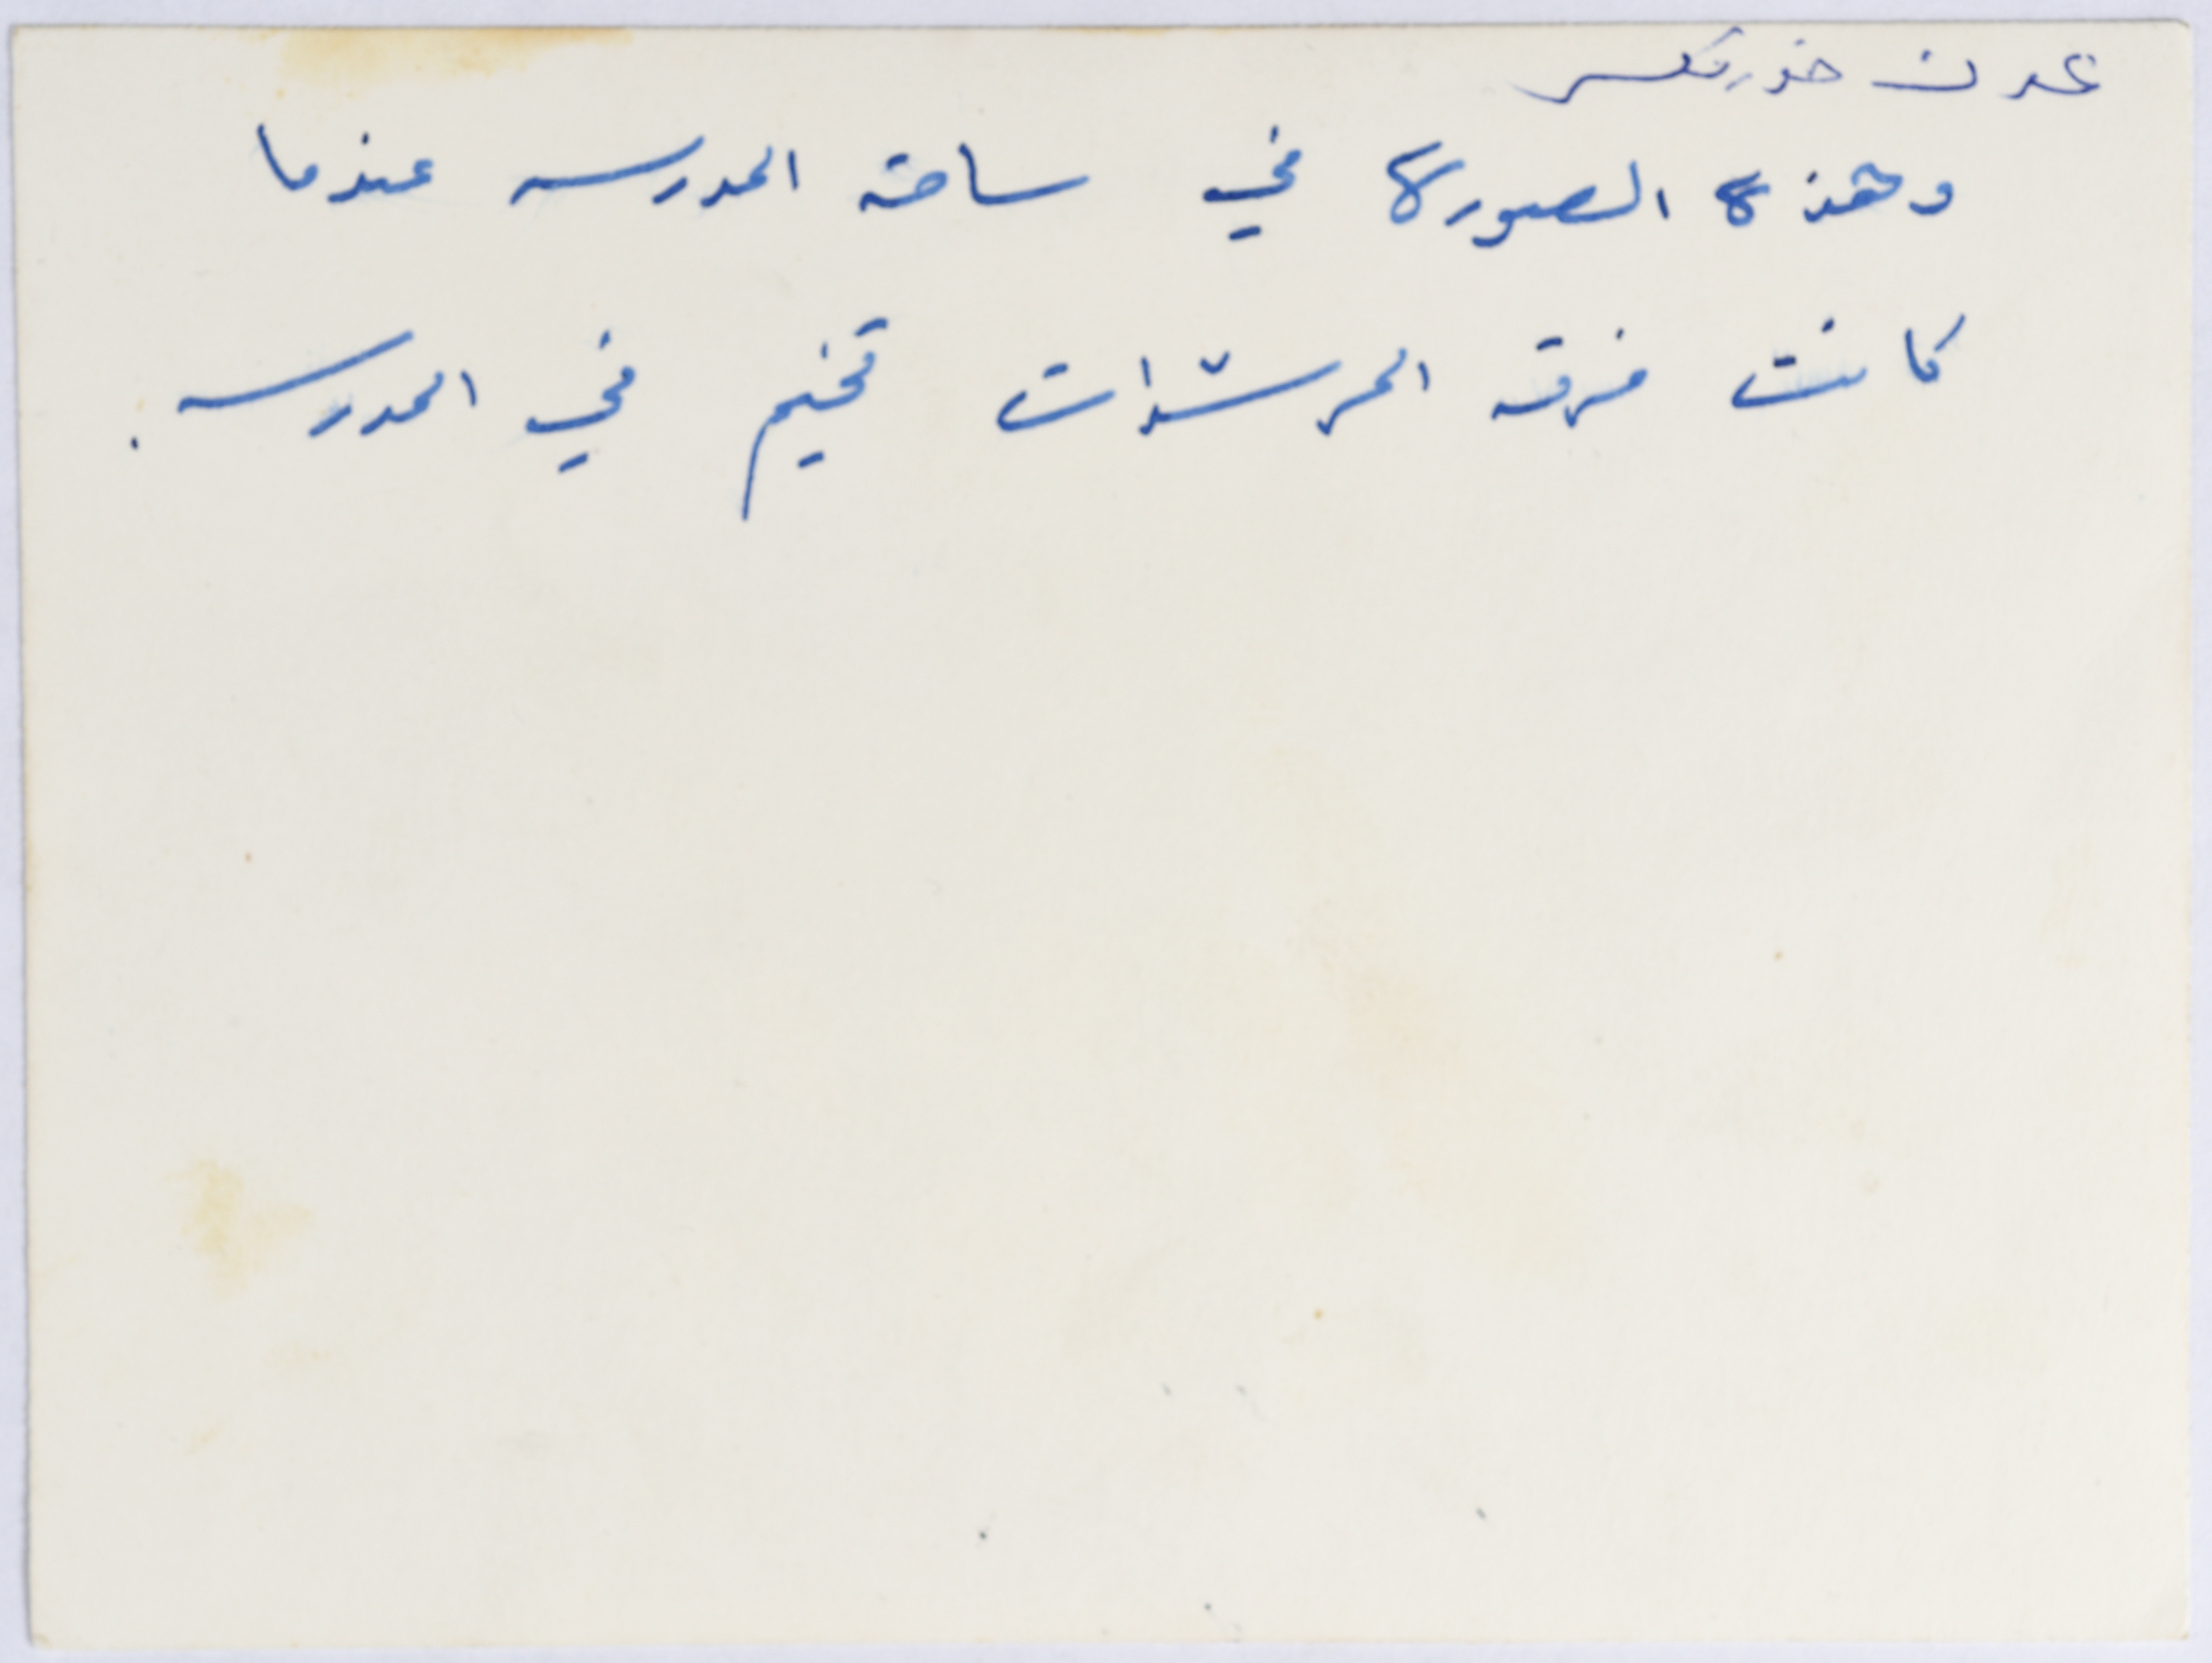 عدن خورمكسر
وهذه الصوره في ساحة المدرسه عندما
كانت فرقة المرشدات تخيم في المدرسه .